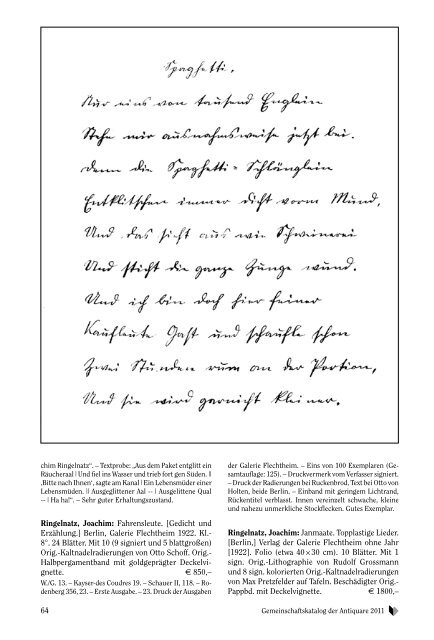 Spaghetti.
Nur eins von tausend Englein
Stehe mir ausnahmsweise jetzt bei.
Denn die Spaghetti-Schlänglein
Entklitschen immer dicht vorm Mund,
Und das sieht aus wie Schweinerei
Und sticht die ganze Zunge wund.
Und ich bin doch hier feiner
Kaufleute Gast und schaufle schon
Zwei Stunden rum an der Portion,
Und sie wird garnicht kleiner.
chim Ringelnatz“. – Textprobe: „Aus dem Paket entglitt ein
Räucheraal | Und fiel ins Wasser und trieb fort gen Süden. |
‚Bitte nach Ihnen‘, sagte am Kanal | Ein Lebensmüder einer
Lebensmüden. || Ausgeglittener Aal -- | Ausgelittene Qual
-- | Ha hal“. – Sehr guter Erhaltungszustand.
Ringelnatz, Joachim: Fahrensleute. [Gedicht und
Erzählung.] Berlin, Galerie Flechtheim 1922. Kl.-
8°. 24 Blätter. Mit 10 (9 signiert und 5 blattgroßen)
Orig.-Kaltnadelradierungen von Otto Schoff. Orig.-
Halbpergamentband mit goldgeprägter Deckelvi-
gnette. € 850,–
W./G. 13. – Kayser-des Coudres 19. – Schauer II, 118. – Ro-
denberg 356, 23. – Erste Ausgabe. – 23. Druck der Ausgaben
der Galerie Flechtheim. – Eins von 100 Exemplaren (Ge-
samtauflage: 125). – Druckvermerk vom Verfasser signiert.
– Druck der Radierungen bei Ruckenbrod, Text bei Otto von
Holten, beide Berlin. – Einband mit geringem Lichtrand,
Rückentitel verblasst. Innen vereinzelt schwache, kleine
und nahezu unmerkliche Stockflecken. Gutes Exemplar.
Ringelnatz, Joachim: Janmaate. Topplastige Lieder.
[Berlin,] Verlag der Galerie Flechtheim ohne Jahr
[1922]. Folio (etwa 40 x 30 cm). 10 Blätter. Mit 1
sign. Orig.-Lithographie von Rudolf Grossmann
und 8 sign. kolorierten Orig.-Kaltnadelradierungen
von Max Pretzfelder auf Tafeln. Beschädigter Orig.-
Pappbd. mit Deckelvignette. € 1800,–
64
Gemeinschaftskatalog der Antiquare 2011